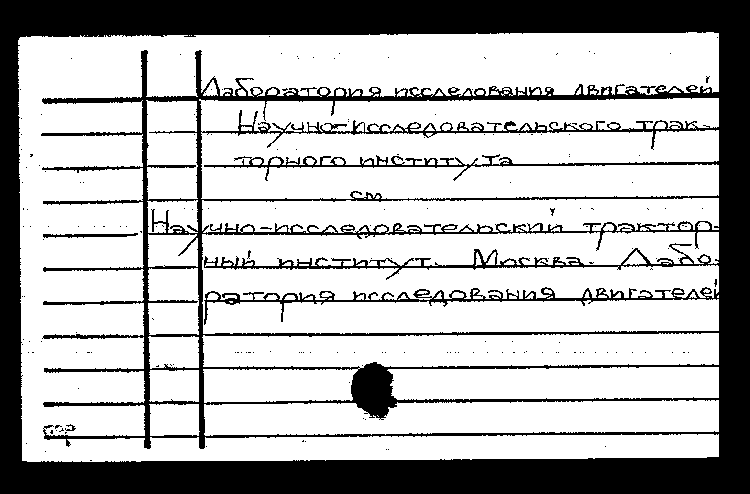 Лаборатория исследования двигателей
Научно-исследовательского трак-
торного института
см
Научно-исследовательский трактор-
ный институт. Москва. Лабо-
ратория исследования двигателей